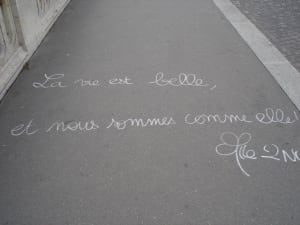 La vie est belle,
et nous sommes comme elle!